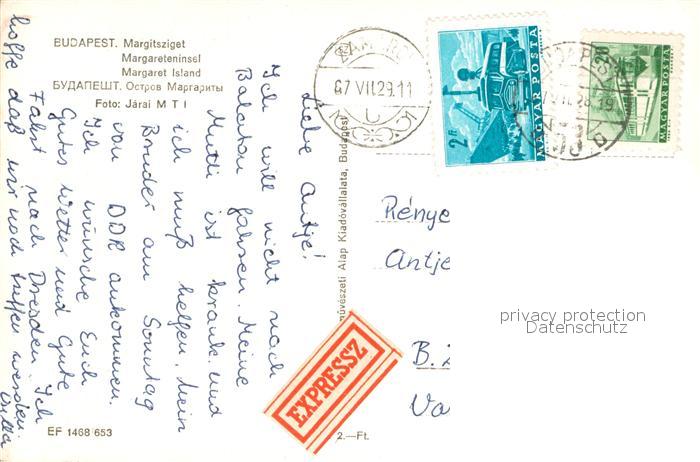 BUDAPEST. Margitsziget
Margareteninsel
Margaret Island
БУДАПЕШТ. Остров Маргариты
Foto: Járai M T I
Liebe Antje!
Ich will nicht nach
Balaton fahren. Meine
Mutti ist krank und
ich muß helfen. Mein
Bruder am Sonntag
von DDR ankommen.
Ich wünsche Euch
Gutes Wetter und Gute
Fahrt nach Dresden. Ich
hoffe daß wir noch treffen werden.
EF 1468/653
művészeti Alap Kiadóvállalata, Budapest
2.—Ft.
67 VII.29.11
2 Ft
MAGYAR POSTA
MAGYAR POSTA
Rénye
Antje
B.
Va
EXPRESSZ
privacy protection
Datenschutz